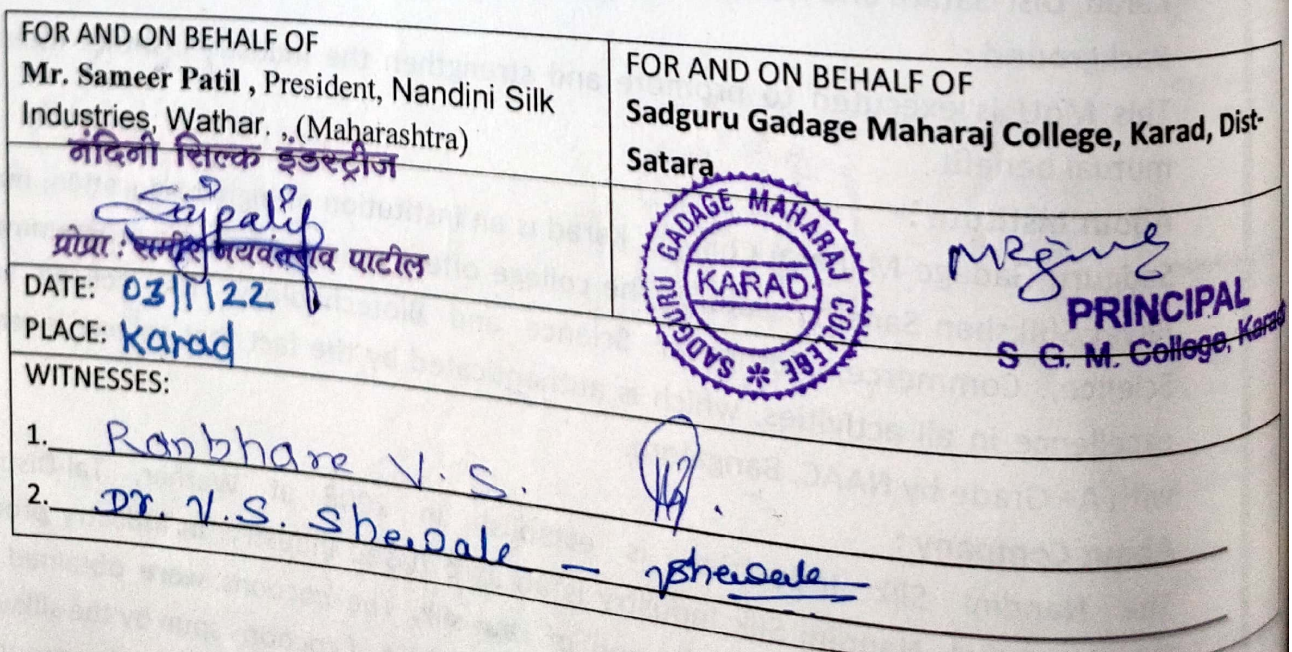 FOR AND ON BEHALF OF
Mr. Sameer Patil , President, Nandini Silk
Industries, Wathar. ,(Maharashtra)
नंदिनी सिल्क इंडस्ट्रीज
प्रोप्रा : समीर जयवंतराव पाटील
DATE: 03/1/22
PLACE: Karad
FOR AND ON BEHALF OF
Sadguru Gadage Maharaj College, Karad, Dist-
Satara
SADGURU GADAGE MAHARAJ COLLEGE
KARAD
PRINCIPAL
S G. M. College, Karad
WITNESSES:
1. Ranbhare V. S.
2. Dr. V.S. Shewale - Shewale